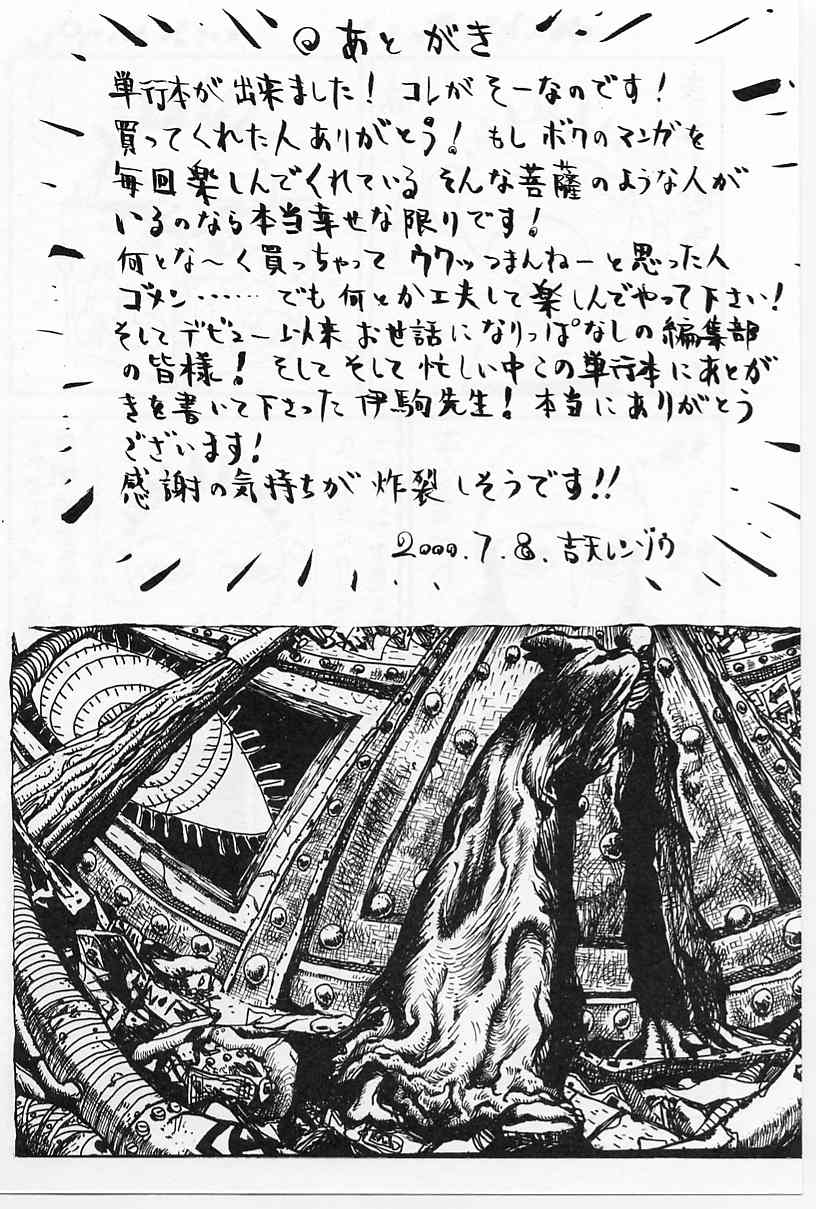 ◎あとがき
単行本が出来ました！ コレがそーなのです！
買ってくれた人ありがとう！ もしボクのマンガを
毎回楽しんでくれている そんな菩薩のような人が
いるのなら本当幸せな限りです！
何とな〜く買っちゃって ウウッつまんねーと思った人
ゴメン…… でも何とか工夫して楽しんでやって下さい！
そしてデビュー以来 お世話になりっぱなしの編集部
の皆様！ そしてそして忙しい中この単行本にあとが
きを書いて下さった伊駒先生！ 本当にありがとう
ございます！
感謝の気持ちが 炸裂しそうです！！
2000.7.8. 吉天レンゾウ